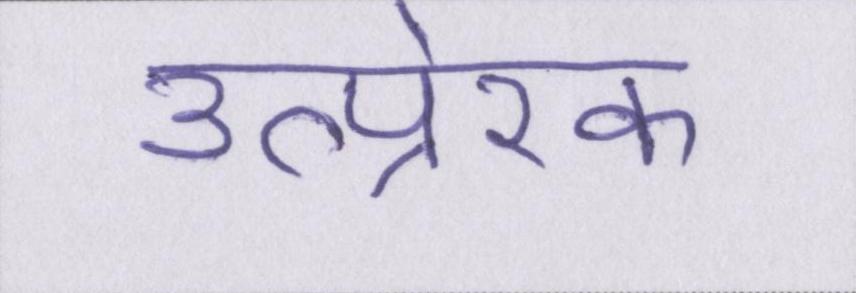 उत्प्रेरक